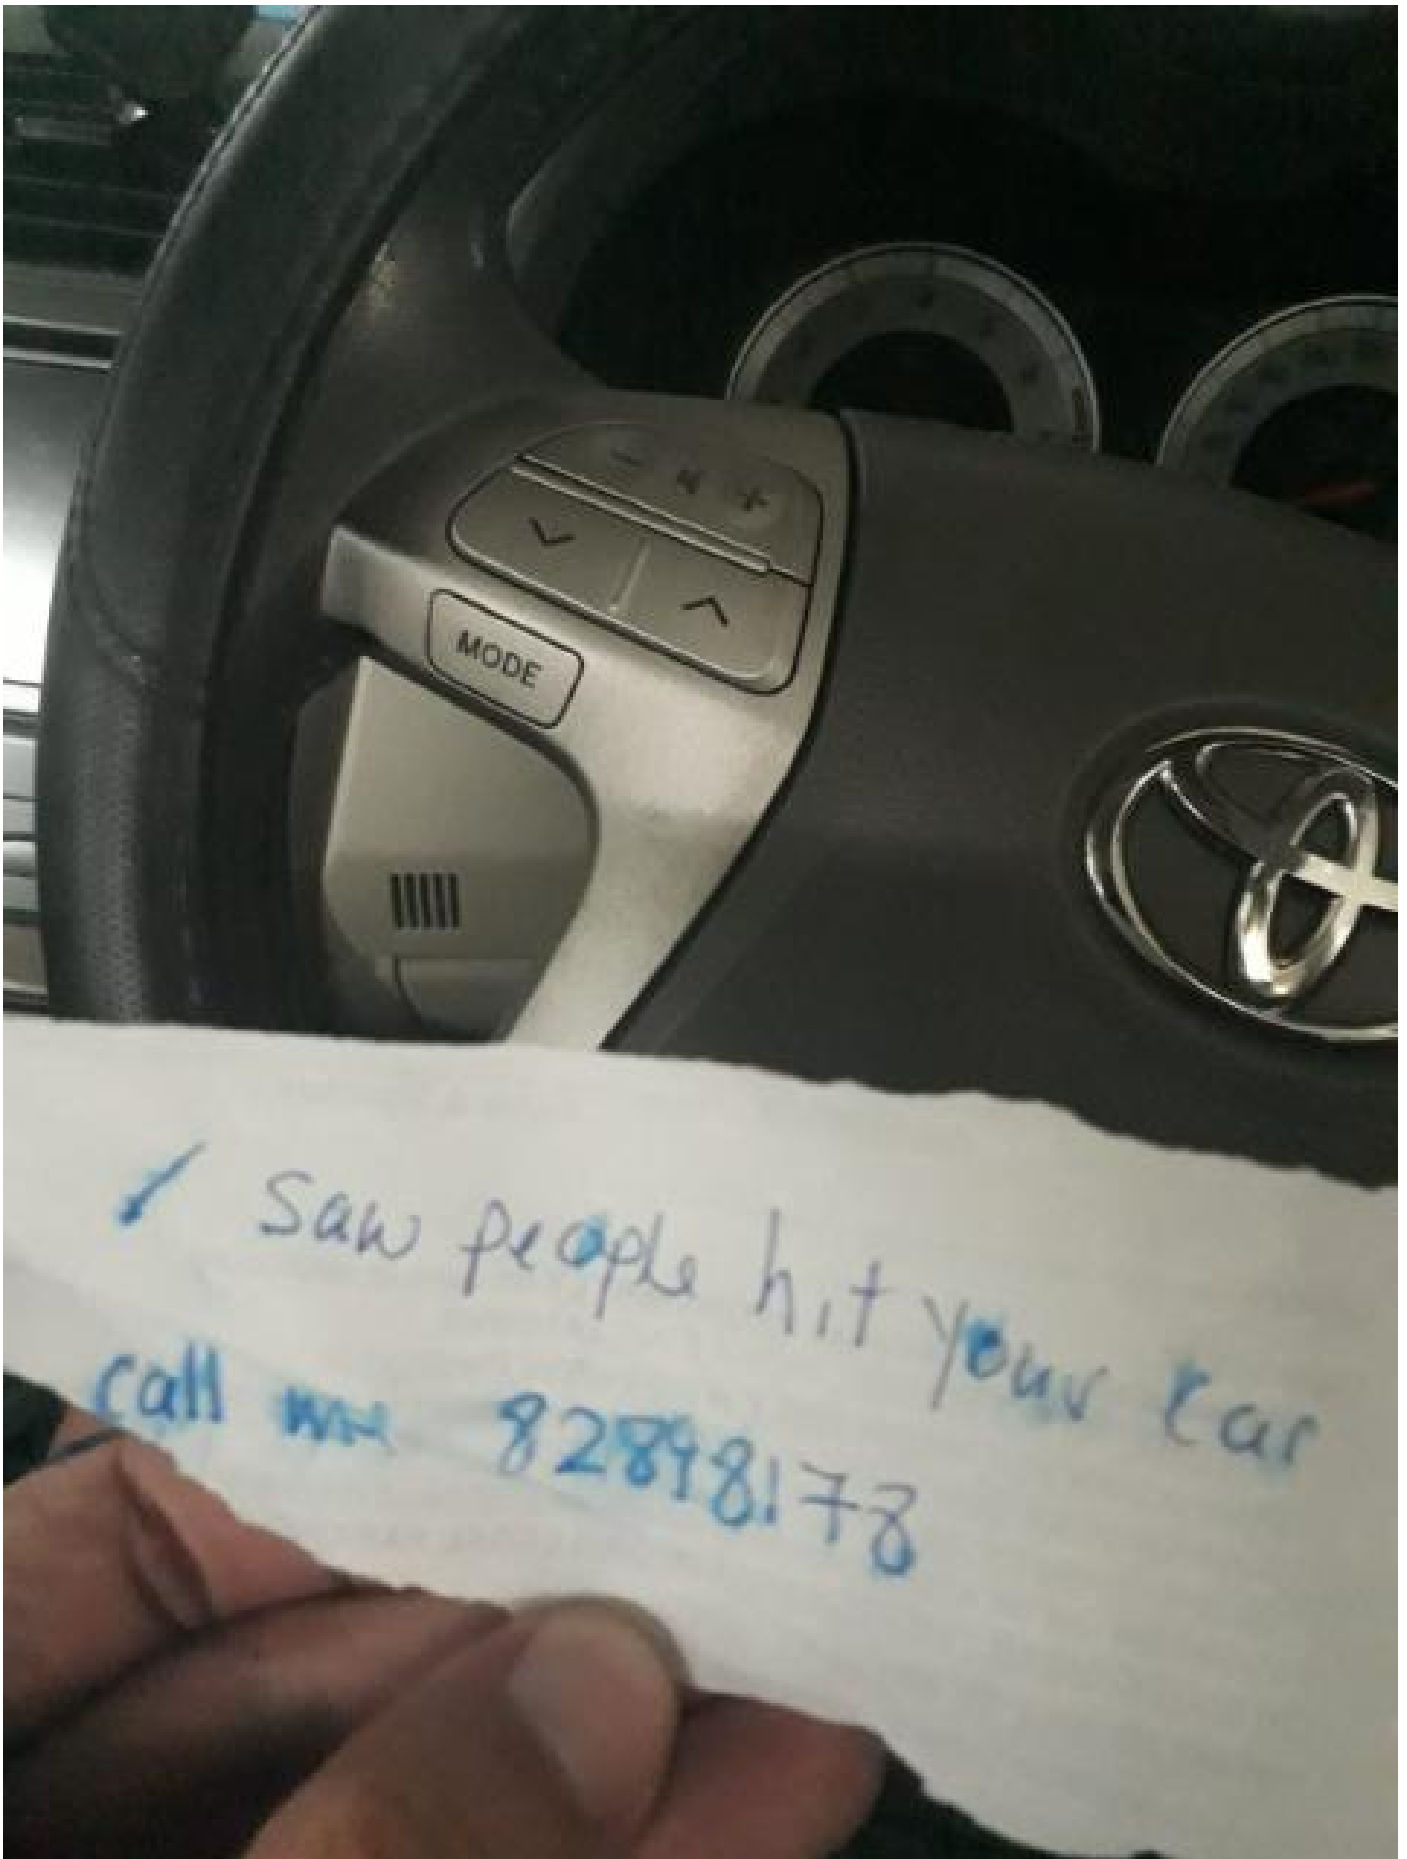 MODE
I saw people hit your car
call me 82898178